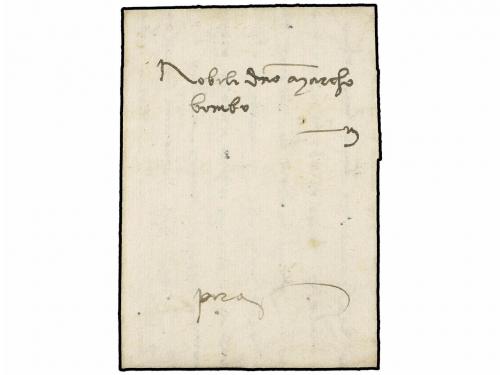 Nobili dno Marcho
bembo